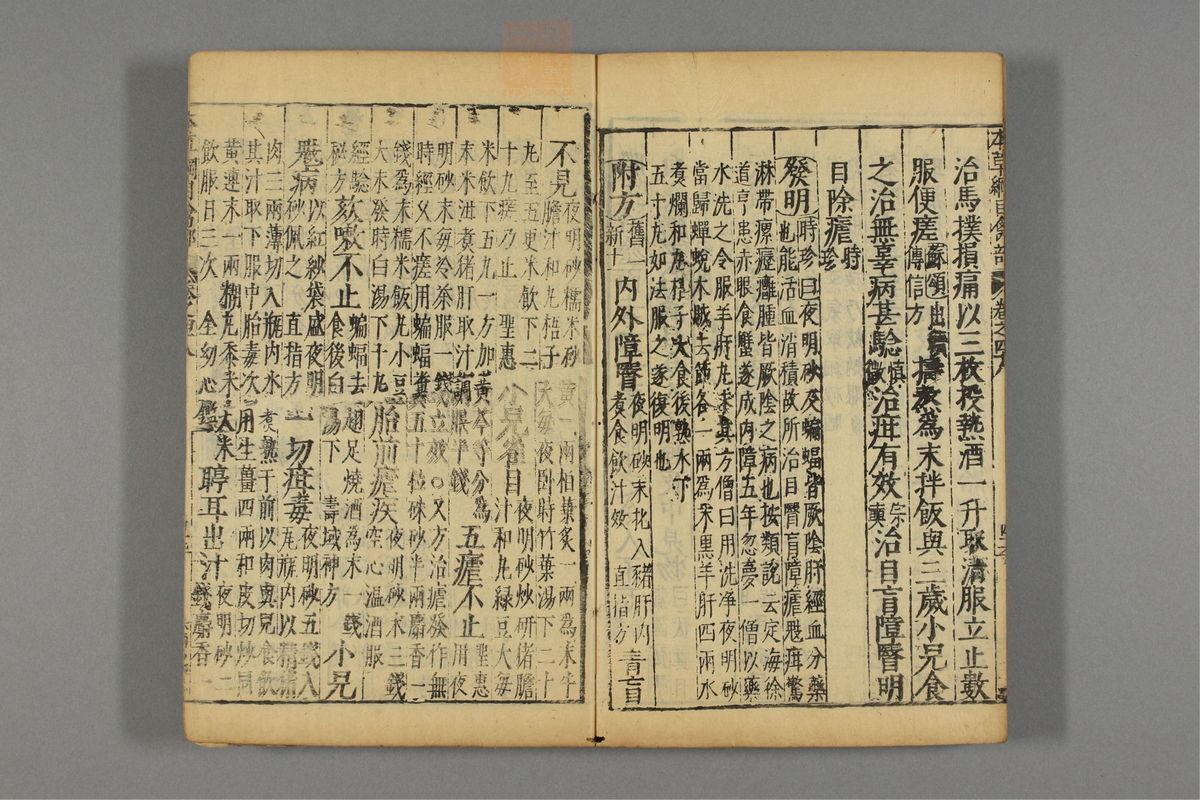 本草綱目禽部 卷之四八
治馬撲損痛以三枚投熱酒一升取清服立止數
服便瘥蘇頌出續傳信方擣熬為末拌飯與三歲小兒食
之治無辜病甚驗慎微治疳有效宗奭治目盲障瞖明
目除瘧時珍
發明時珍曰夜明砂及蝙蝠皆厥陰肝經血分藥
也能活血消積故所治目瞖盲障瘧魃疳驚
淋帶瘰癧癰腫皆厥陰之病也按類說云定海徐
道亨患赤眼食蟹遂成內障五年忽夢一僧以藥
水洗之令服羊肝丸求其方僧曰用洗淨夜明砂
當歸蟬蛻木賊去節各一兩為末黑羊肝四兩水
煮爛和丸梧子大食後熟水下
五十丸如法服之遂復明也
附方舊一新十內外障瞖夜明砂末化入豬肝內煮食飲汁效 直指方青盲
不見夜明砂糯米炒黃一兩柏葉炙一兩為末牛
膽汁和丸梧子大每夜臥時竹葉湯下二十
丸至五更米飲下二
十丸瘥乃止 聖惠小兒雀目夜明砂炒研豬膽汁和丸綠豆大每
米飲下五丸一方加黃芩等分為
末米泔煮豬肝取汁調服半錢五瘧不止聖惠用夜
明砂末每冷服一錢立效○又方治瘧發作無
時經久不瘥用蝙蝠糞五十粒硃砂半兩麝香一
錢為末糯米飯丸小豆
大未發時白湯下十丸胎前瘧疾夜明砂末三錢空心溫酒服
經驗秘方欬嗽不止蝙蝠去翅足燒酒為末一錢食後白湯下 壽域神方小兒
魃病以紅紗袋盛夜明砂佩之 直指方一切疳毒夜明砂五錢入瓦瓶內以精豬
肉三兩薄切入瓶內水煮熟午前以肉與兒食飲
其汁取下服中胎毒次用生薑四兩和皮切炒同
黃連末一兩糊丸黍米大米
飲服日三次 全幼心鑑聹耳出汁夜明砂二錢麝香一